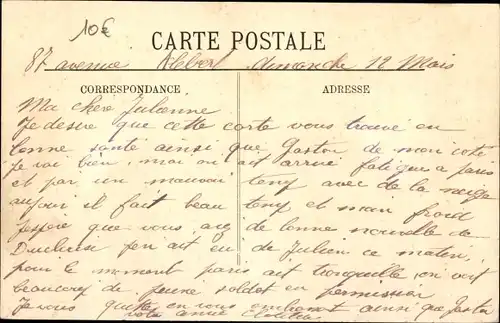 10€
CARTE POSTALE
87 avenue Kleber dimanche 12 Mars
CORRESPONDANCE ADRESSE
Ma chère Julienne
Je desire que cette carte vous trouve en
bonne santé ainsi que Gaston de mon coté
je vai bien, moi on ait arrivé fatigué a paris
et par un mauvai temp avec de la neige
aujour il fait beau temp et main froid
jespère que vous avez de bonne nouvelle de
jen ait eu de Julien ce matin,
pour le moment paris ait tranquille, on voit
beaucoup de jeune soldat en permission
Je vous quitte en vous embrassant ainsi que Gaston
votre amie